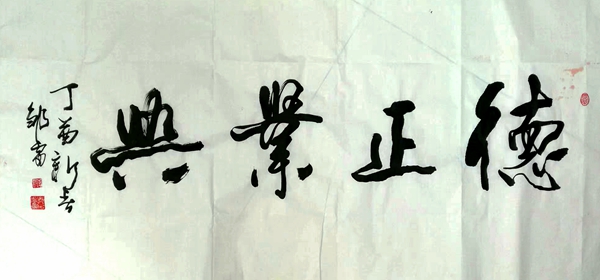 德正業興
丁酉新春